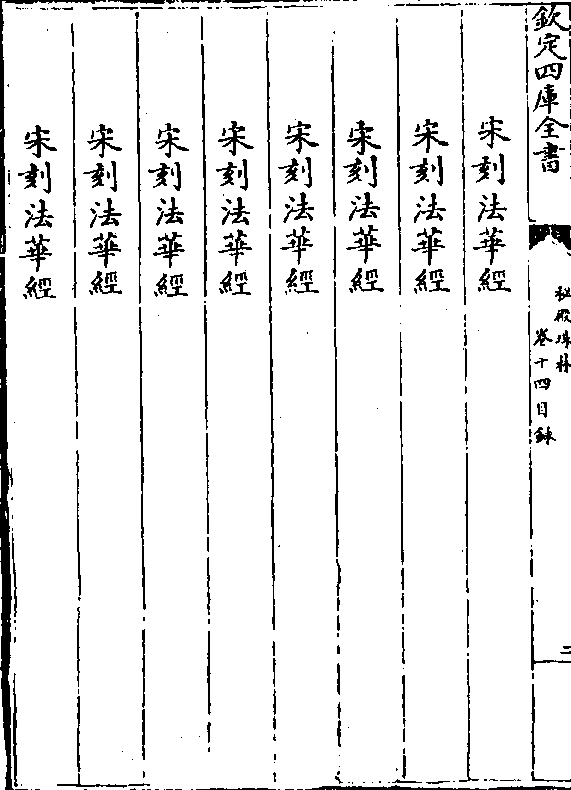 欽定四庫全書
秘殿珠林
卷十四目錄
二
宋刻法華經
宋刻法華經
宋刻法華經
宋刻法華經
宋刻法華經
宋刻法華經
宋刻法華經
宋刻法華經